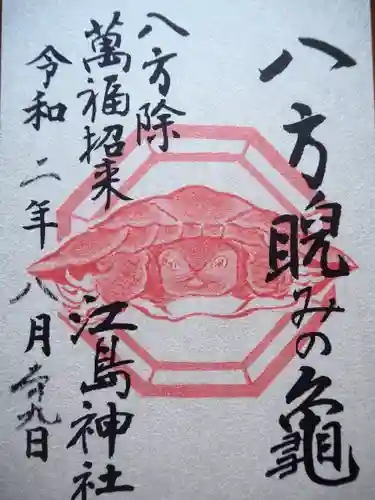 八方睨みの亀
八方除
萬福招来
江島神社
令和二年八月廿九日